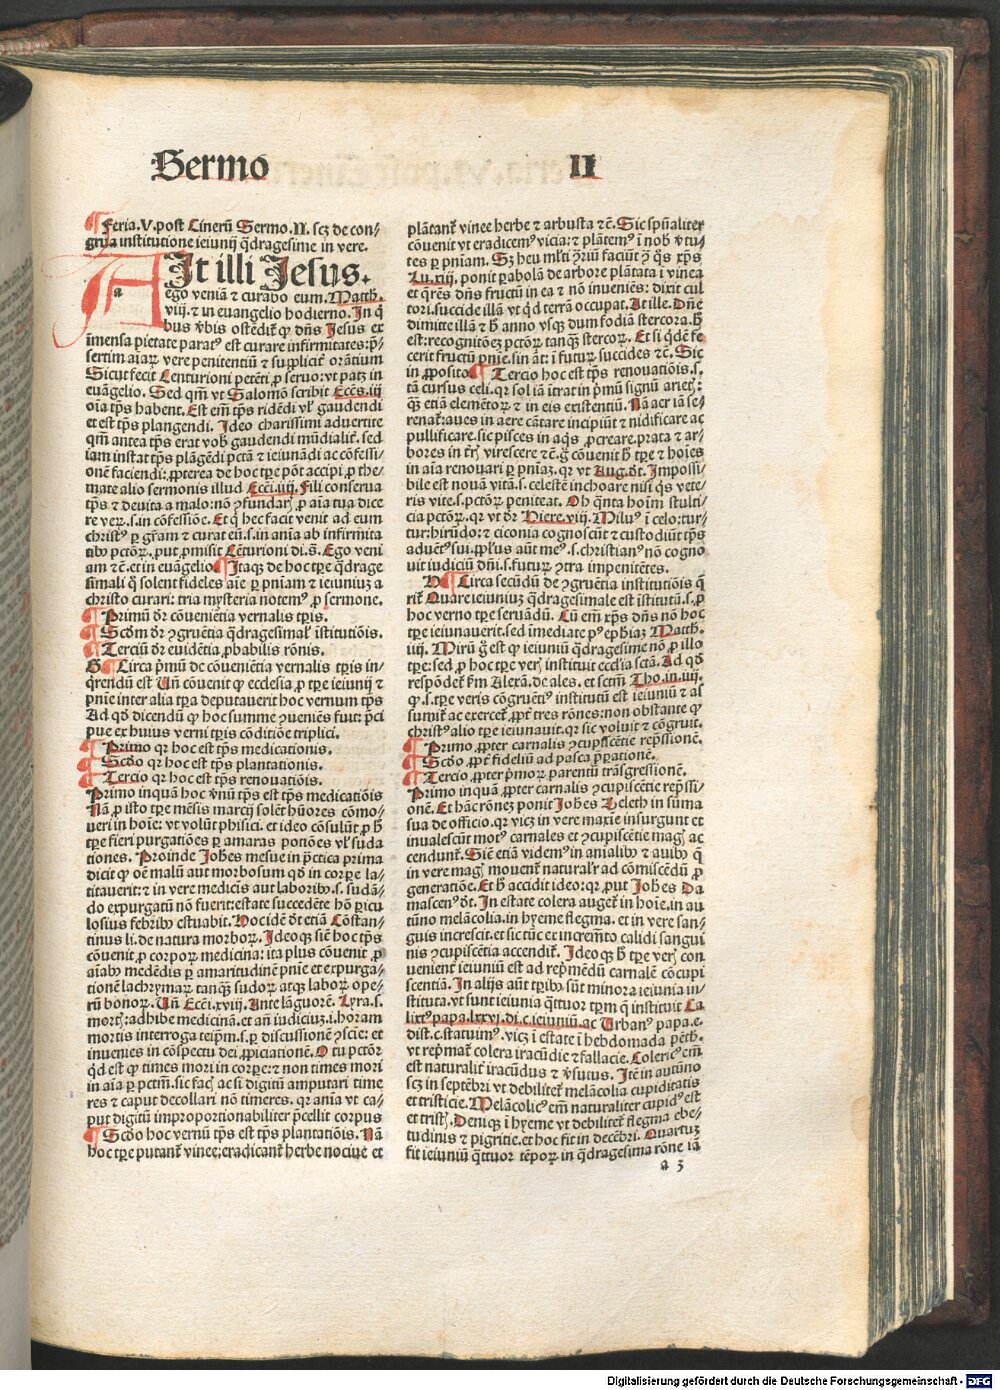 Sermo II
¶ Feria.V.post Cinerū Sermo.II.scz de con-
grua institutione ieiunij q̄dragesime in vere.
AIt illi Jesus.
ego veniā ⁊ curabo eum. Matth.
viij. ⁊ in euangelio hodierno. In q̄
bus v̄bis ostēdit᷑ ꝙ dn̄s Jesus ex
imensa pietate parat⁹ est curare infirmitates: p̄-
sertim aīaꝝ vere penitentiū ⁊ supplicit᷑ orātium
Sicut fecit Centurioni petēti ꝓ seruo: vt patꝫ in
euāgelio. Sed qm̄ vt Salomō scribit Ecc̄s.iij
oīa tp̄s habent. Est em̄ tp̄s ridēdi vl᷑ gaudendi
et est tp̄s plangendi. Ideo charissimi aduertite
qm̄ antea tp̄s erat vob̄ gaudendi mūdialit᷑. sed
iam instat tp̄s plāgēdi pctā ⁊ ieiunādi ac cōfessi-
onē faciendi: ꝓpterea de hoc tꝑe pōt accipi ꝓ the-
mate alio sermonis illud Ecc̄i.iiij. Fili conserua
tp̄s ⁊ deuita a malo: nō ↄfundar᷑ ꝓ aīa tua dice
re veꝝ.s.in cōfessiōe. Et q̄ hec facit venit ad eum
christ⁹ ꝑ gr̄am ⁊ curat eū.s.in anīa ab infirmita
tibꝰ pctōꝝ. put ꝓmisit Cēturioni di.s. Ego veni
am ⁊c̄. et in euāgelio ¶ Itaqꝫ de hoc tꝑe q̄drage
simali q̄ solent fideles aīe ꝑ pn̄iam ⁊ ieiuniuꝫ a
christo curari: tria mysteria notem⁹ ꝓ sermone.
¶ Primum dr̄ cōueniētia vernalis tꝑis.
¶ Scd̄m dr̄ ↄgruētia q̄dragesimal᷑ īstitutiōis.
¶ Terciū dr̄ euidētia ꝓbabilis rōnis.
¶ Circa p̄mū de cōueniētia vernalis tꝑis in-
q̄rendū est Vn̄ cōuenit ꝙ ecclesia ꝓ tꝑe ieiunij ⁊
pnīe inter alia tꝑa deputauerit hoc vernum tp̄s
Ad qd̄ dicendū ꝙ hoc summe ↄueniēs fuit: p̄ci
pue ex huius verni tꝑis cōditiōe triplici.
¶ Primo qꝛ hoc est tp̄s medicationis.
¶ Scd̄o qꝛ hoc est tp̄s plantationis.
¶ Tercio qꝛ hoc est tp̄s renouatiōis.
Primo inquā hoc v̄nū tp̄s est tp̄s medicatiōis
Nā ꝓ isto tꝑe mēsis marcij solēt hūores cōmo-
ueri in hoīe: vt volūt phisici. et ideo cōsulūt ꝓ h̄
tꝑe fieri purgatiōes ꝑ amaras potiōes vl᷑ suda
tiones. Proinde Joh̄es mesue in p̄ctica prima
dicit ꝙ oē malū aut morbosum qd̄ in corpꝑe la-
titauerit: ⁊ in vere medicīs aut laboribꝰ.s.sudā-
do expurgatū nō fuerit: estate succedēte hoꝫ ꝑicu
losius febribꝰ estuabit. Hoc idē d̄t etiā Cōstan-
tinus li.de natura morboꝝ. Ideoqꝫ sic̄ hoc tp̄s
cōuenit ꝓ corpoꝝ medicina: ita plus cōuenit ꝓ
aīabꝰ medēdis ꝑ amaritudinē pnīe et expurga-
tionē lachrymaꝝ tanqꝫ sudoꝝ atqꝫ laboꝝ ope-
rū honoꝝ. Vn̄ Ecc̄i.xviij. Ante lāguorē. Lyra.s.
mort᷑: adhibe medicinā. et an̄ iudiciuꝫ.i.horam
mortis interroga teip̄m.s.ꝑ discussionē ↄscīe: et
inuenies in cōspectu dei ꝓpiciationē. O tu pctōr
qd̄ est ꝙ times mori in corꝑe: ⁊ non times mori
in aīa ꝑ pctm̄. sic fac̄ ac si digitū amputari time
res ⁊ caput decollari nō timeres. qꝛ anīa vt ca-
put digitū improportionabiliter p̄cellit corpus
¶ Scd̄o hoc vernū tp̄s est tp̄s plantatiōis. Nā
hoc tꝑe putant᷑ vinee: eradicant᷑ herbe nociue et
plātant᷑ vinee herbe ⁊ arbusta ⁊c̄. Sic spūaliter
cōuenit vt eradicem⁹ vicia: ⁊ plātem⁹ ī nob̄ v̄tu-
tes ꝑ pn̄iam. Sꝫ heu ml̄ti ↄ̄riū faciūt ꝓ q̄s xp̄s
Lu.xiij. ponit ꝑabolā de arbore plātata ī vinea
et q̄rēs dn̄s fructū in ea ⁊ nō inueniēs: dixit cul
tori. succide illā vt qd̄ terrā occupat. At ille. Dn̄e
dimitte illā ⁊ h̄ anno vsqꝫ dum fodiā stercora. h̄
est: recognitiōeꝫ pctōꝝ tanqꝫ stercoꝝ. Et si qd̄ē fe
cerit fructū pnīe. sin aūt: ī futuꝝ succides ⁊c̄. Sic
in ꝓposito ¶ Tercio hoc est tp̄s renouatiōis.s.
tā cursus celi. qꝛ sol iā ītrat in p̄mū signū ariet᷑:
qꝫ etiā elemētoꝝ ⁊ in eis existentiū. Nā aer iā se-
renat᷑: aues in aere cātare incipiūt ⁊ nidificare ac
pullificare. sic pisces in aq̄s ꝓcreare. prata ⁊ ar-
bores in t̄rl᷑ virescere ⁊c̄. ḡ cōuenit h̄ tꝑe ⁊ hoīes
in aīa renouari ꝑ pn̄iaꝫ. qꝛ vt Aug.d̄t. Impossi-
bile est nouā vitā.s.celestē inchoare nisi q̄s vete-
ris vite.s.pctōꝝ peniteat. Oh q̄nta hoīm stulti-
cia pctōꝝ. qꝛ vt dr̄ Hiere.viij. Milu⁹ ī celo: tur-
tur: hirūdo: ⁊ ciconia cognoscūt ⁊ custodiūt tp̄s
aduēt⁹ sui. pp̄l⁹ aūt me⁹.s.christian⁹ nō cogno
uit iudiciū dn̄i.s.futuꝝ ↄtra impenitētes.
¶ Circa secūdū de ↄgruētia institutiōis q̄
rit᷑ Quare ieiuniuꝫ q̄dragesimale est īstitutū.s.ꝓ
hoc verno tꝑe seruādū. Cū em̄ xp̄s dn̄s nō hoc
tꝑe ieiunauerit. sed īmediate p⁹ eph̄iaꝫ Matth.
iiij. Mirū ḡ est ꝙ ieiuniū q̄dragesime nō ꝓ illo
tꝑe: sed ꝓ hoc tꝑe ver᷑ instituit eccl̄ia sct̄ā. Ad qd̄
respōdet᷑ fm̄ Alexā.de ales. et sctm̄ Tho.in.iiij.
ꝙ.s.tꝑe veris cōgruēti⁹ institutū est ieiuniū ⁊ as
sumit᷑ ac exercet᷑. ꝓpt᷑ tres rōnes: non obstāte ꝙ
christ⁹ alio tꝑe ieiunauit. qꝛ sic voluit ⁊ cōgruit.
¶ Primo ꝓpter carnalis ↄcupiscētie rep̄ssionē.
¶ Scd̄o ꝓpt᷑ fideliū ad pasca p̄ꝑationē.
¶ Tercio ꝓpter p̄moꝝ parentū trāsgressionē.
Primo inquā ꝓpter carnalis ↄcupiscētie rep̄ssi-
onē. Et hāc rōneꝫ ponit Joh̄es Beleth in sūma
sua de officio. qꝛ vicꝫ in vere maxīe insurgunt et
inualescūt mot⁹ carnales et ↄcupiscētie mag᷑ ac
cendunt᷑. Sic̄ etiā videm⁹ in anialibꝰ ⁊ auibꝰ q̄
in vere mag᷑ mouent᷑ naturalr̄ ad cōmiscēdū ꝓ
generatiōe. Et h̄ accidit ideo: qꝛ ꝓut Joh̄es Da
mascen⁹ d̄t. In estate colera auget᷑ in hoīe. in au
tūno melācolia. in hyeme flegma. et in vere san-
guis increscit. et sic tūc ex increm̄to calidi sangui
nis ↄcupiscētia accendit᷑. Ideoqꝫ h̄ tꝑe ver᷑ con
uenient᷑ ieiuniū est ad rep̄mēdū carnalē cōcupi
scentiā. In alijs aūt tribꝰ sūt minora ieiunia in-
stituta. vt sunt ieiunia q̄ttuor tꝑm q̄ instituit Ca
lixt⁹ papa.lxxvi.di.c.ieiuniū. ac Urban⁹ papa.e.
dist.c.statuim⁹. vicꝫ ī estate ī hebdomada pēth.
vt rep̄mat᷑ colera iracūdie ⁊ fallacie. Coleric⁹ em̄
est naturalit᷑ iracūdus ⁊ v̄sutus. Itē in autūno
scꝫ in septēbri vt debilitet᷑ melācolia cupiditatis
et tristicie. Melācolic⁹ em̄ naturaliter cupid⁹ est
et trist᷑. Deniqꝫ ī hyeme vt debilitet᷑ flegma ebe-
tudinis ⁊ pigritie. et hoc fit in decēbri. Quartuꝫ
fit ieiuniū q̄ttuor tēpoꝝ in q̄dragesima rōne iā
a 3
Digitalisierung gefördert durch die Deutsche Forschungsgemeinschaft - DFG